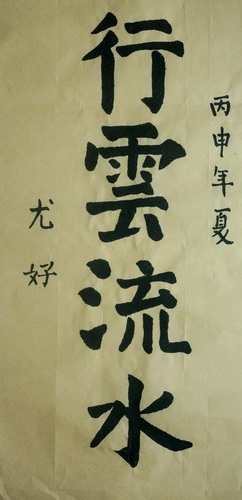 丙申年夏
行雲流水
尤好